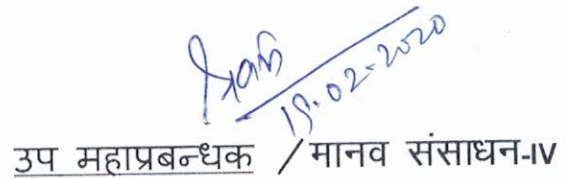 19.02.2020
उप महाप्रबन्धक / मानव संसाधन-IV